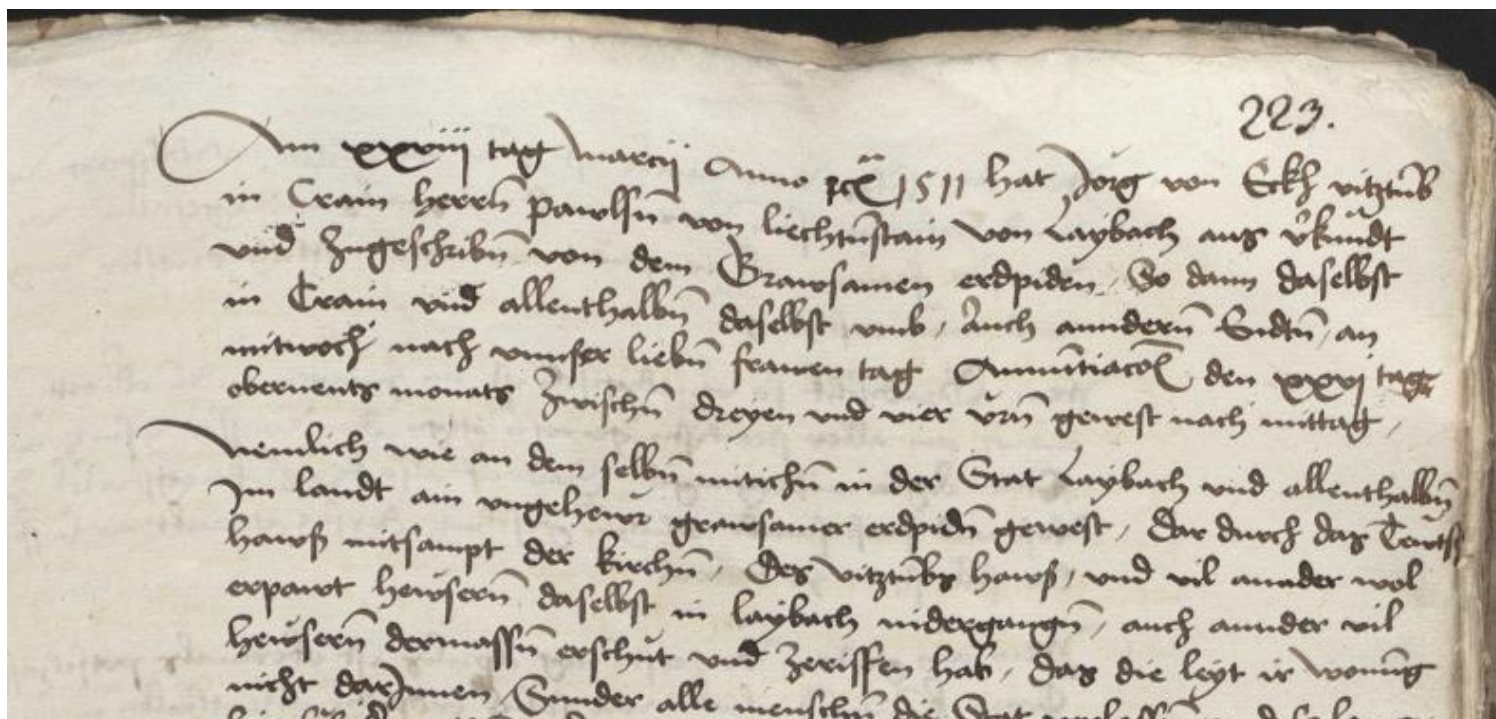 223.
Am xxviij tag Marcij Anno 1511 hat Jorg von Eckh vitztūb
in Crain herrn̄ pawlsn̄ von liechtn̄stain von Laybach aus v̊kundt
vnd zugeschribn̄ von dem Grawsamen erdpiden, So dann daselbst
in Crain vnd allenthalbn̄ daselbst vmb, Auch anndern̄ Endtn̄, an
mitwoch nach vnnser liebn̄ frawen tag den xxvj tag
obernents monats zwischn̄ dreyen vnd vier vrn̄ gewest nach mittag,
Nemlich wie an dem selbn̄ mitichn̄ in der Stat Laybach vnd allenthalbn̄
Im landt ain vngehewr grawsamer erdpidn̄ gewest, Dar durch das Tewtsch
hawß mitsampt der kirchn̄, Des vitztūbs hawß, vnd vil annder wol
erpawt hewsern̄ daselbst in laybach nidergangn̄, auch annder vil
hewsern̄ dermassn̄ erschut vnd zerissen hab, das die leyt ir wonūg
nicht darJnnen, Sunder alle menschn̄ die Stat